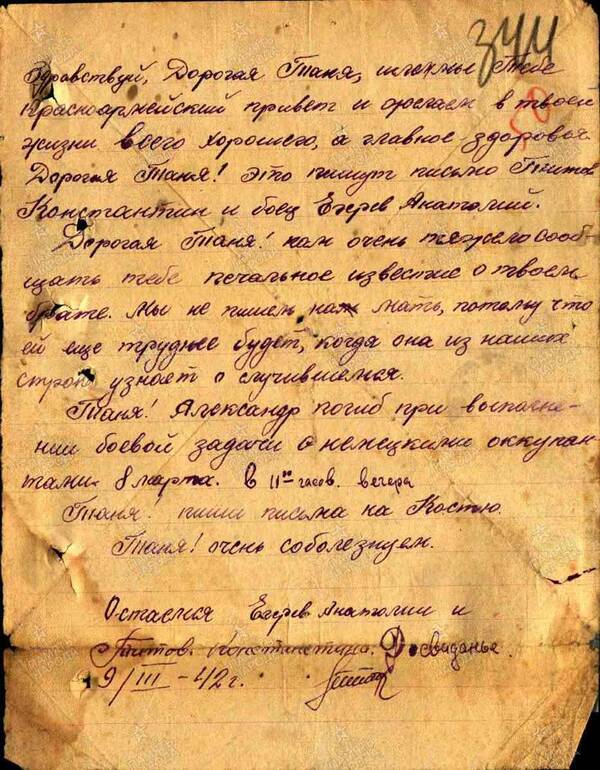 344
Здравствуй, Дорогая Таня, шлем мы Тебе
красноармейский привет и желаем в твоей
жизни всего хорошего, а главное здоровья.
Дорогая Таня! это пишут письмо Титов
Константин и боец Егерев Анатолий.
Дорогая Таня! нам очень тяжело сооб-
щать тебе печальное известие о твоем
брате. Мы не пишем мать, потому что
ей еще труднее будет, когда она из наших
строк узнает о случившемся.
Таня! Александр погиб при выполне-
нии боевой задачи с немецкими оккупан-
тами 8 марта. в 11 00 часов. вечера
Таня! пиши письма на Костю
Таня! очень соболезнуем.
Остаемся Егерев Анатолий и
Титов. Константин. Досвиданье.
9/III-42 г.